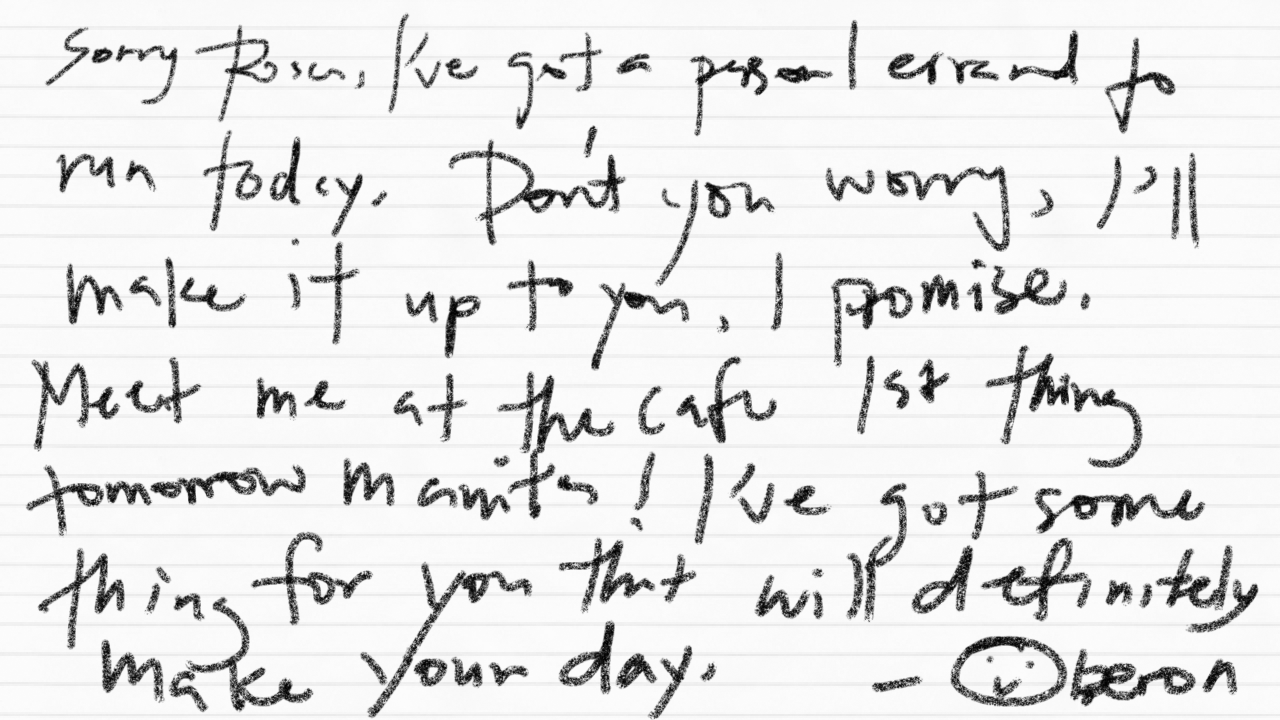 Sorry Rosa, I've got a personal errand to
run today. Don't you worry, I'll
make it up to you, I promise.
Meet me at the cafe 1st thing
tomorrow mamita! I've got some
thing for you that will definitely
make your day.
- Oberon